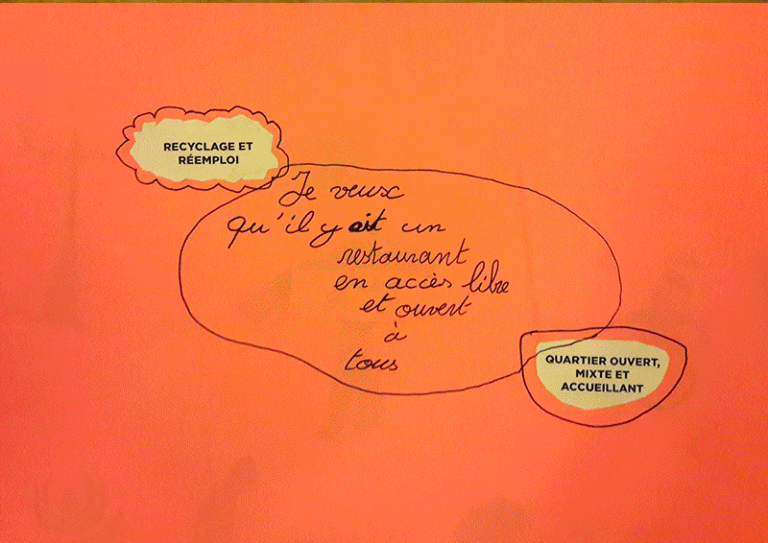 RECYCLAGE ET
RÉEMPLOI
Je veux
qu'il y ait un
restaurant
en accès libre
et ouvert
à
tous
QUARTIER OUVERT,
MIXTE ET
ACCUEILLANT